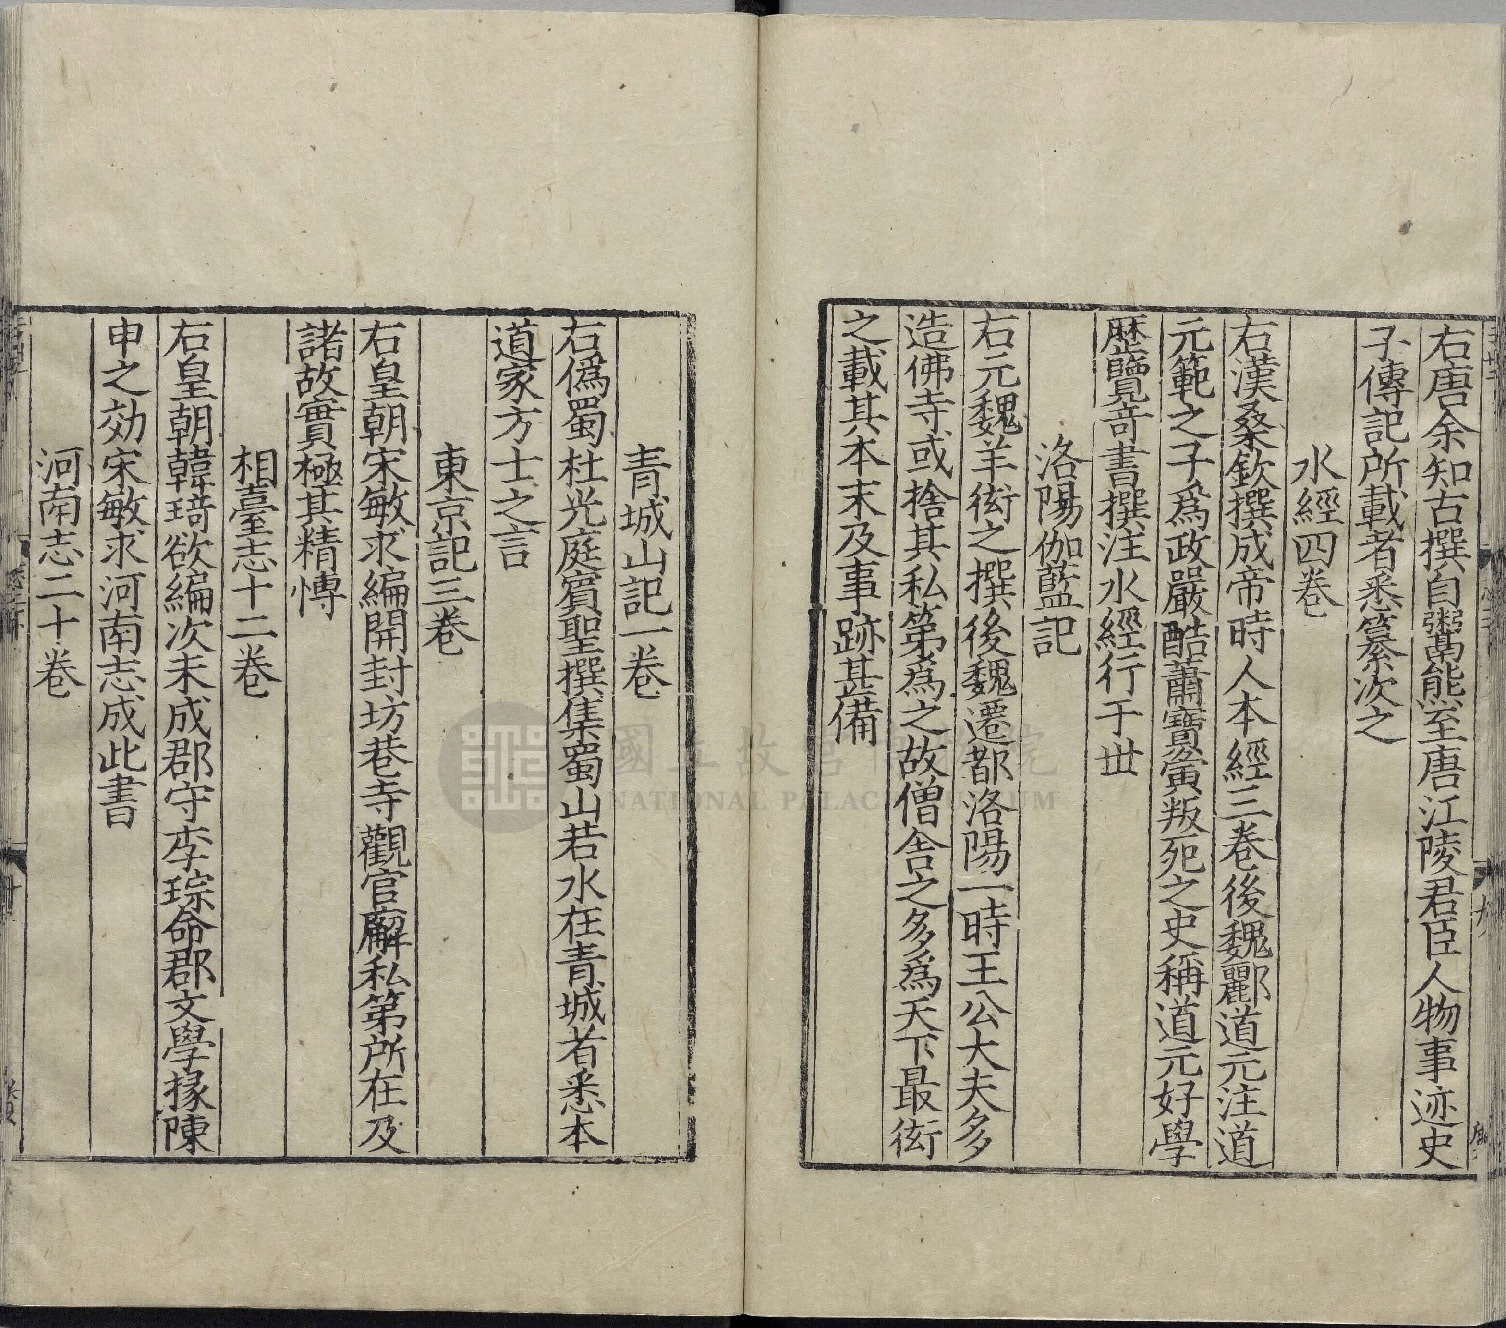 右唐余知古撰自鬻熊至唐江陵君臣人物事迹史
子傳記所載者悉纂次之
水經四卷
右漢桑欽撰成帝時人本經三卷後魏酈道元注道
元範之子爲政嚴酷蕭寶夤叛死之史稱道元好學
歷覽竒書撰注水經行于丗
洛陽伽藍記
右元魏羊衒之撰後魏遷都洛陽一時王公大夫多
造佛寺或捨其私第爲之故僧舍之多爲天下最衒
之載其本末及事跡甚備
青城山記一卷
右僞蜀杜光庭賔聖撰集蜀山若水在青城者悉本
道家方士之言
東京記三卷
右皇朝宋敏求編開封坊巷寺觀官廨私第所在及
諸故實極其精愽
相臺志十二卷
右皇朝韓琦欲編次未成郡守李琮命郡文學掾陳
申之効宋敏求河南志成此書
河南志二十卷
國立故宮博物院
NATIONAL PALACE MUSEUM